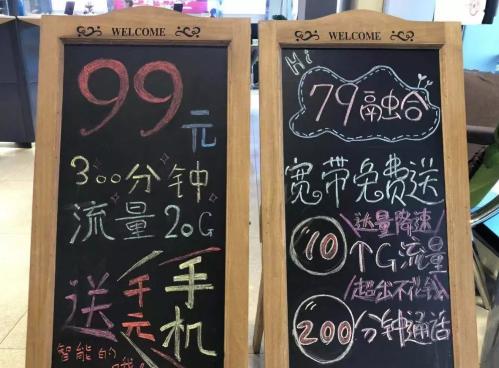 WELCOME
99元
300分钟
流量20G
送千元手机
智能的
WELCOME
Hi
79融合
宽带免费送
达量降速
10个G流量
超出不花钱
200分钟通话